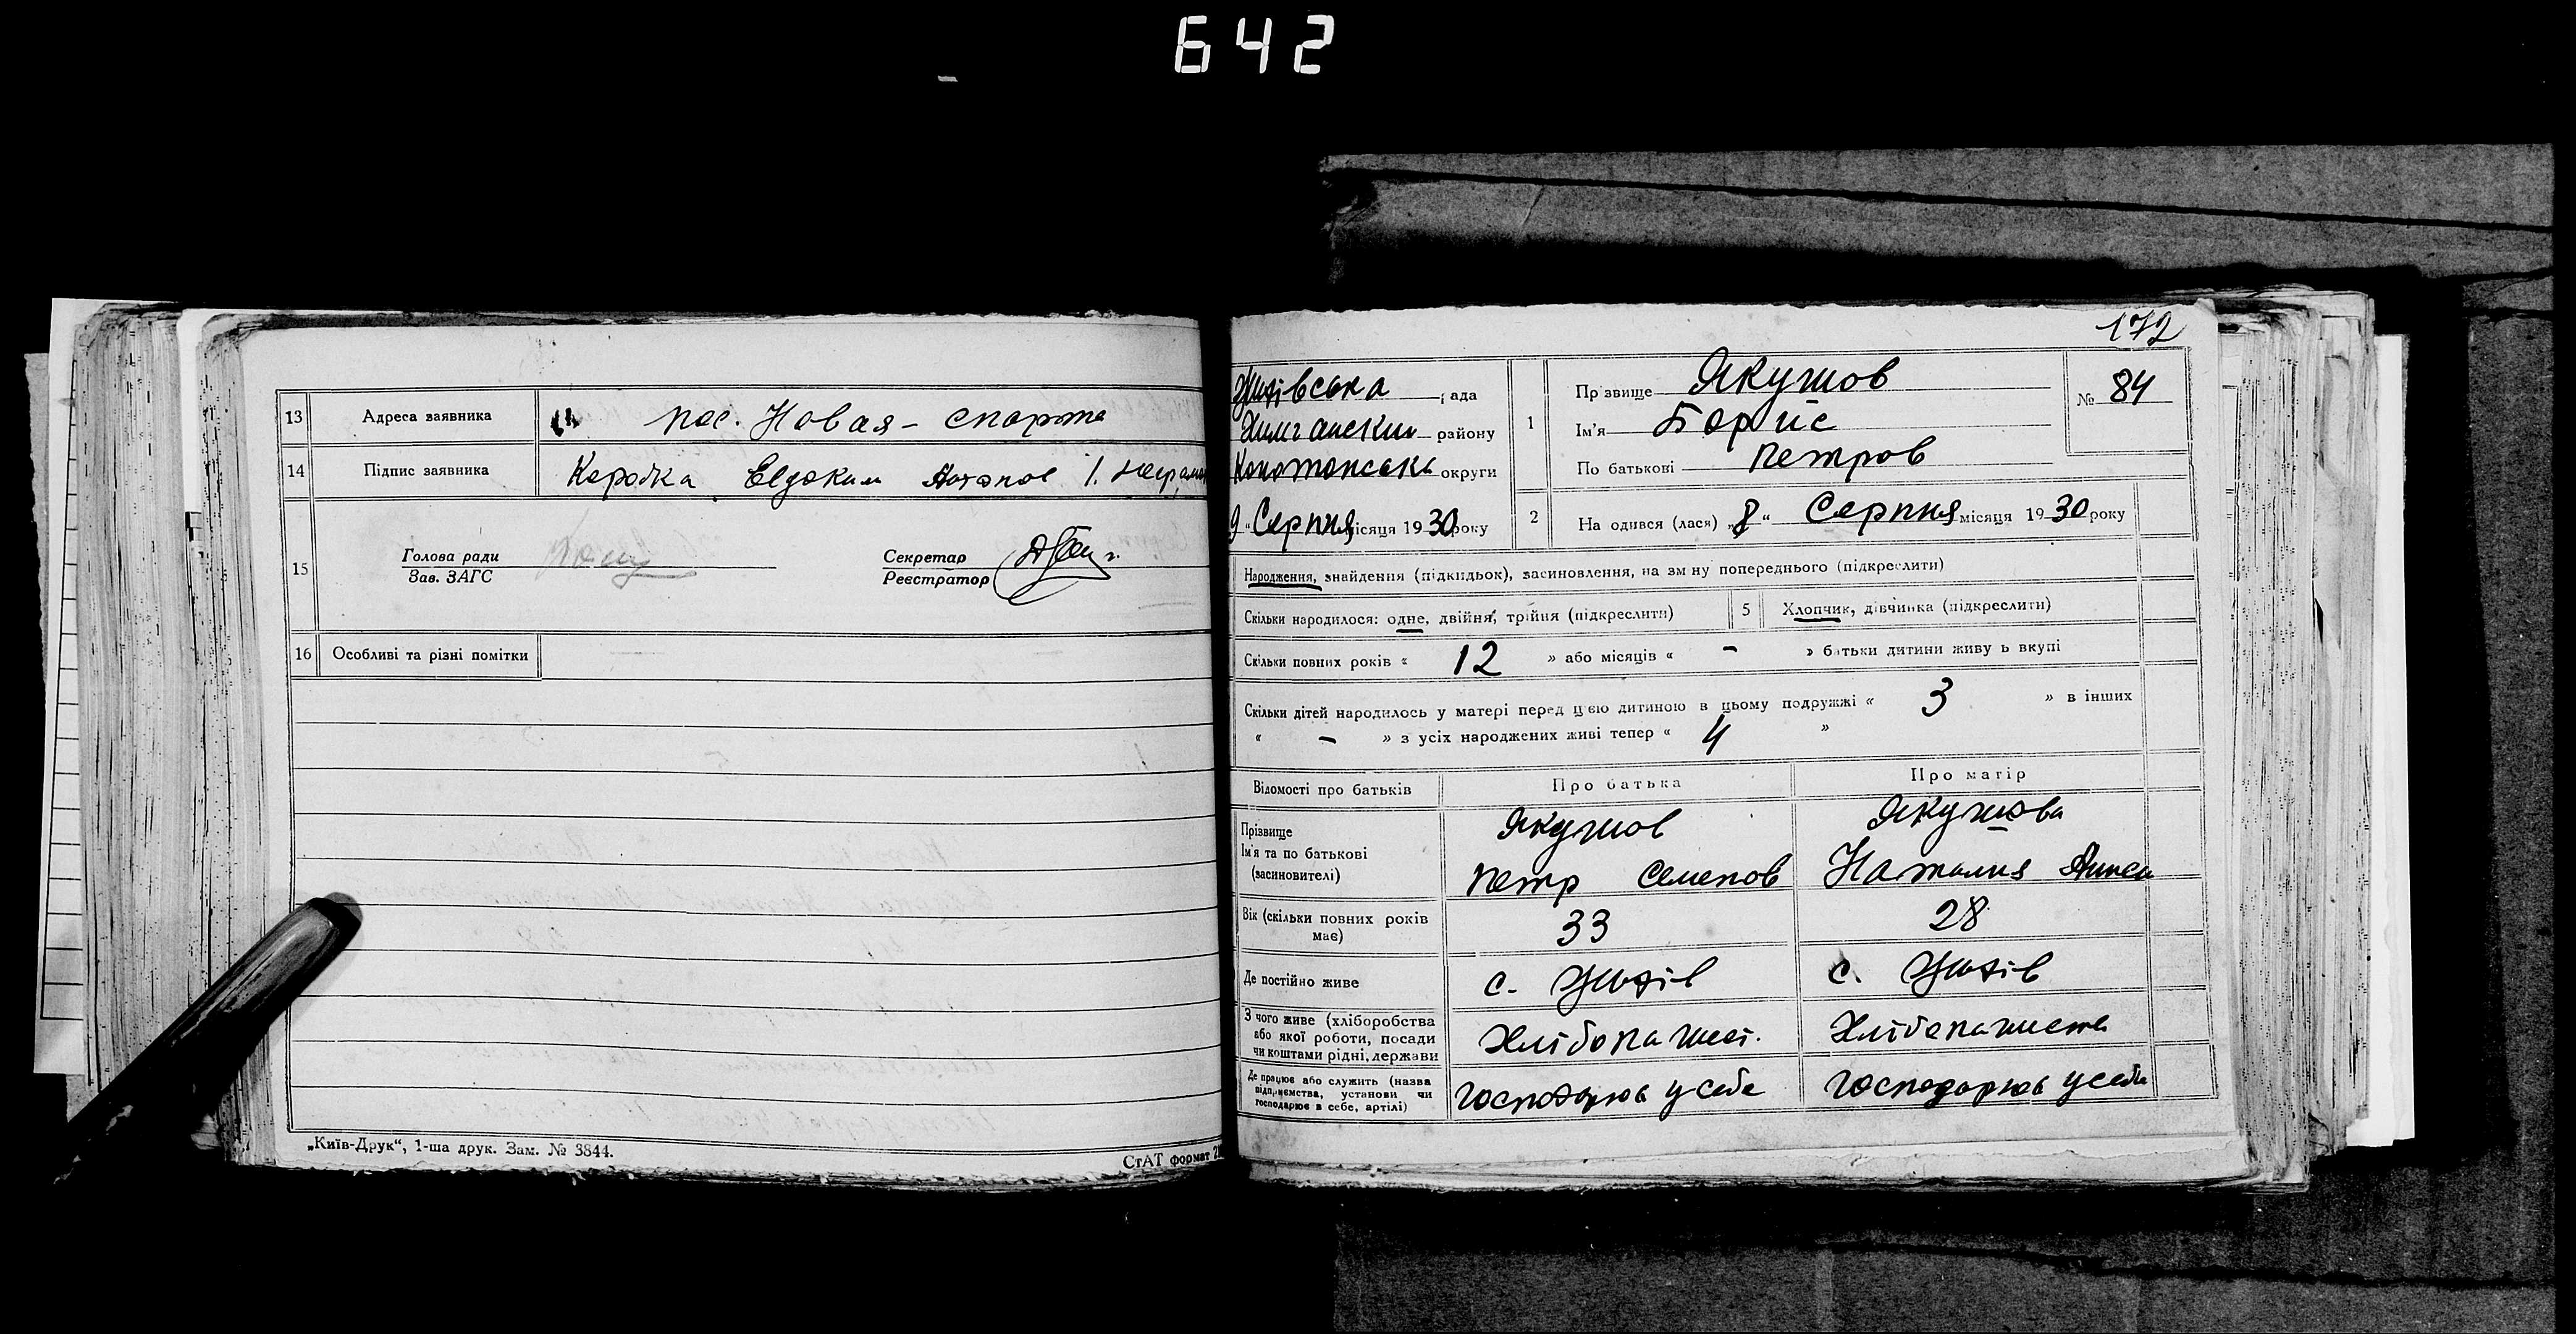 642
13 Адреса заявника пос. Новая-спарта
14 Підпис заявника Коробка Евдоким
15 Голова ради
Зав. ЗАГС
Секретар
Реєстратор
16 Особливі та різні помітки
„Київ-Друк“, 1-ша друк. Зам. № 3844.
СтАТ формат
172
рада
району
округи
9 „ Серпня місяця 1930 року
1 Прізвище Якушов
№ 84
Ім'я Борис
По батькові Петров
2 На одився (лася) „8“ Серпня місяця 1930 року
Народження, знайдення (підкидьок), засиновлення, на зміну попереднього (підкреслити)
Скільки народилося: одне, двійня, трійня (підкреслити)
5 Хлопчик, дівчинка (підкреслити)
Скільки повних років « 12 » або місяців « - » батьки дитини живуть вкупі
Скільки дітей народилось у матері перед цією дитиною в цьому подружжі « 3 » в інших
« - » з усіх народжених живі тепер « 4 »
Відомості про батьків
Про батька
Про матір
Прізвище
Ім'я та по батькові
(засиновителі)
Якушов
Петр Семенов
Якушова
Наталия
Вік (скільки повних років має)
33
28
Де постійно живе
с.
с.
З чого живе (хліборобства
або якої роботи, посади
чи коштами рідні, держави
Хлібопашест.
Хлібопашества
Де працює або служить (назва
підприємства, установи чи
господарює в себе, артілі)
Господарює у себе
Господарює у себе